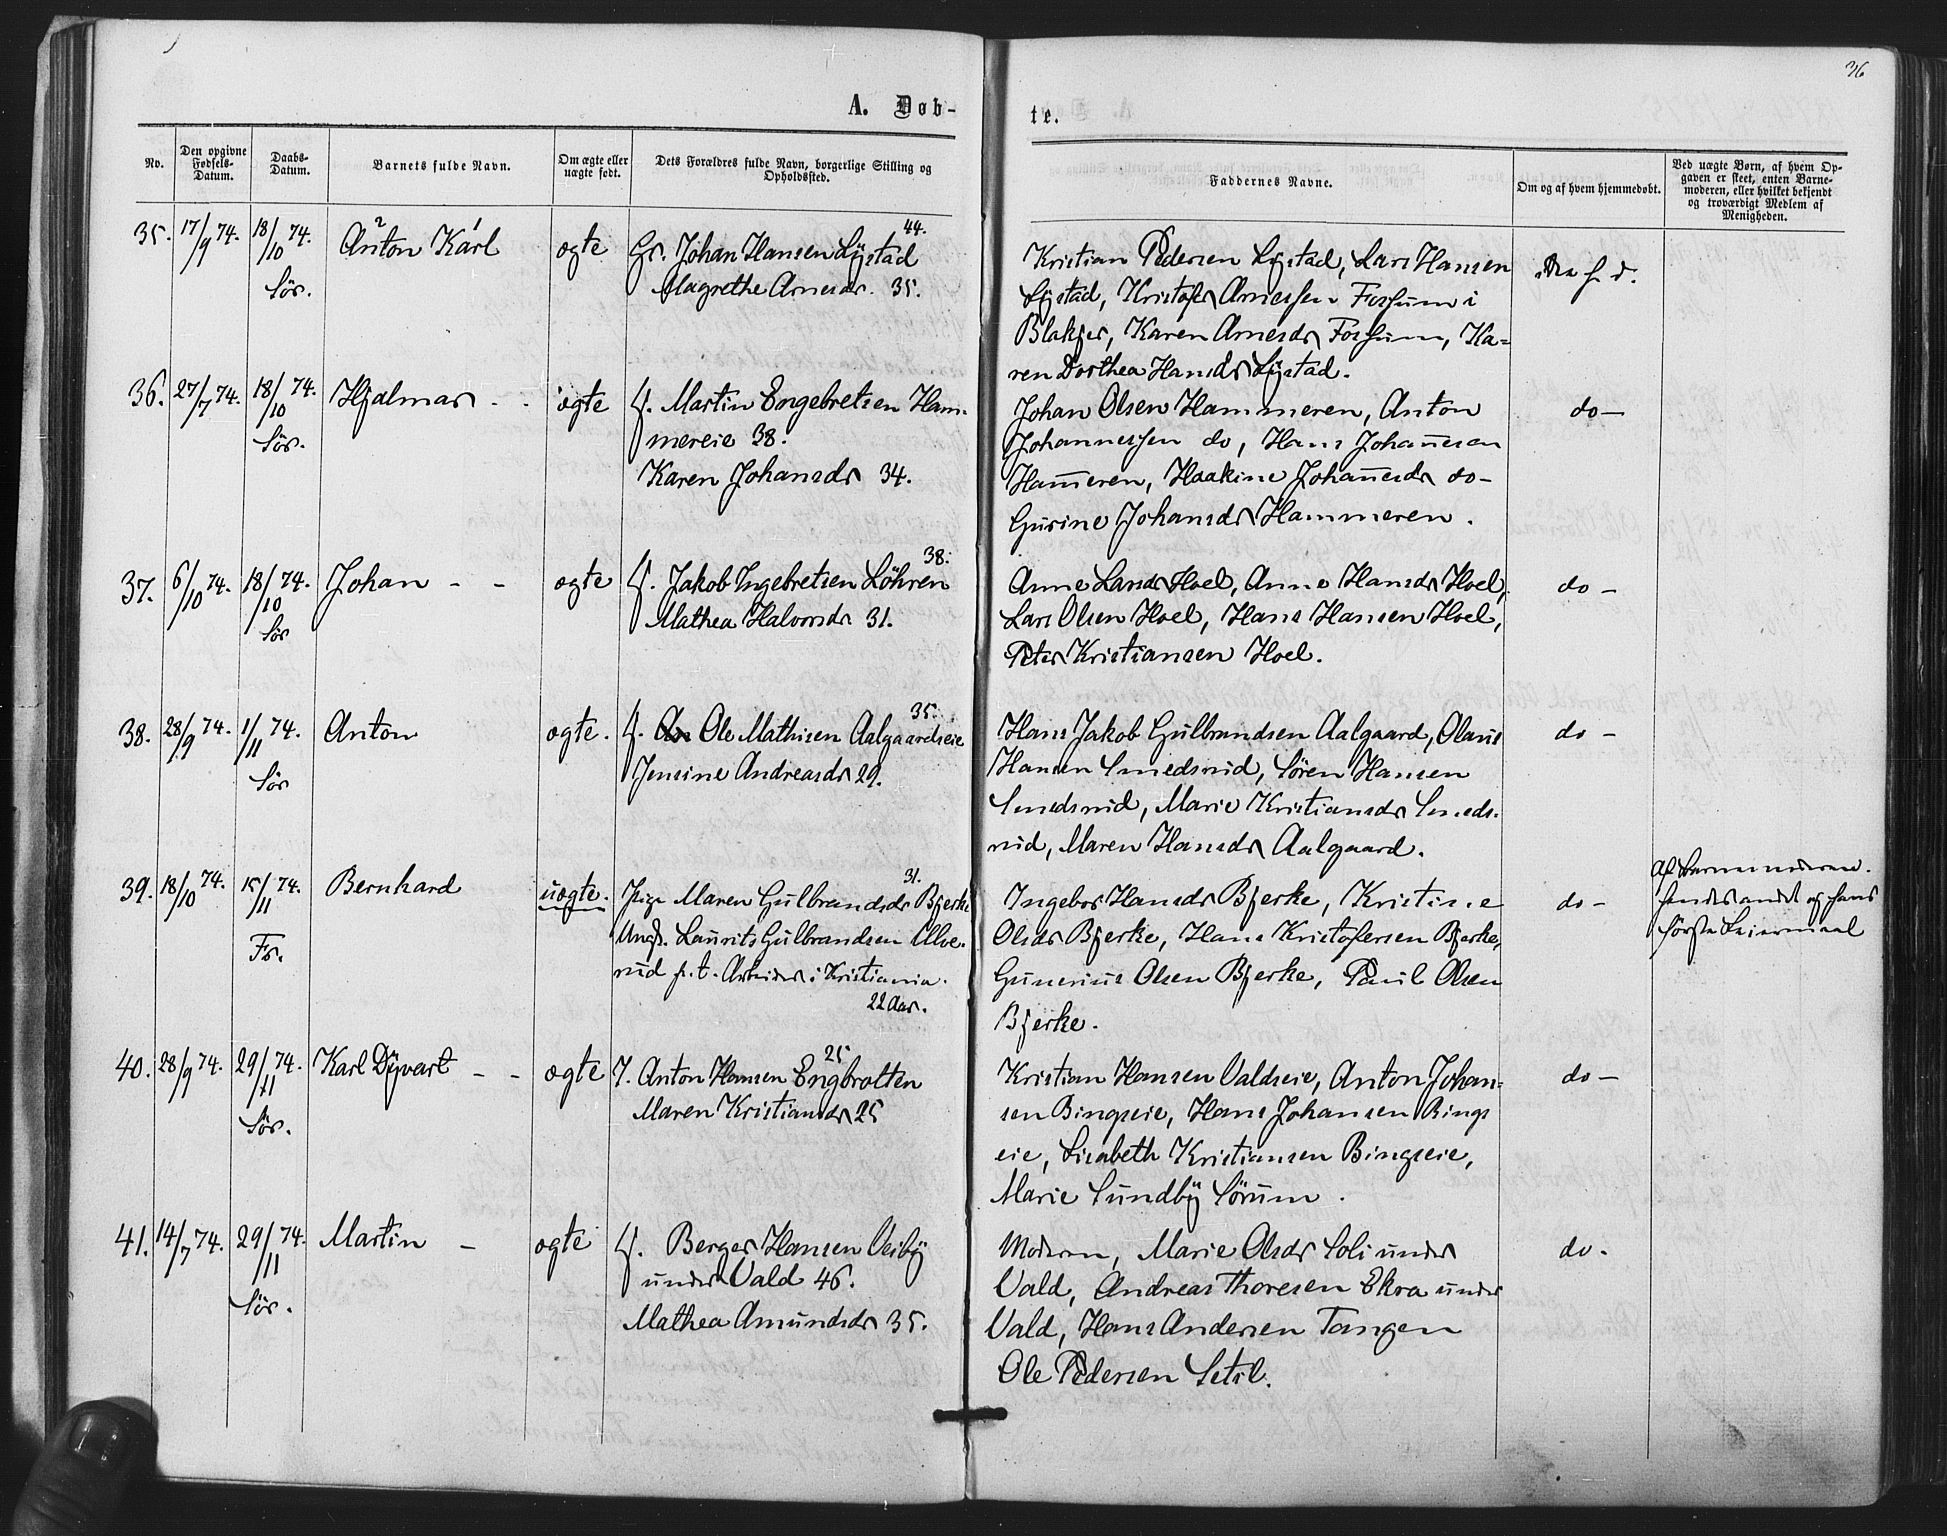 36
A. Døb-
te.
No.
Den opgivne
Fødsels-
Datum.
Daabs-
Datum.
Barnets fulde Navn.
Om ægte eller
uægte født.
Dets Forældres fulde Navn, borgerlige Stilling og
Opholdssted.
Faddernes Navne.
Om og af hvem hjemmedøbt.
Ved uægte Børn, af hvem Op-
gaven er skeet, enten Barne-
moderen, eller hvilket bekjendt
og troværdigt Medlem af
Menigheden.
35. 17/9 74. 18/10 74. Anton Karl ægte Gr. Johan Hansen Lystad 44.
Sør. Magrethe Arnesdr. 35.
Kristian Pedersen Lystad, Lars Hansen
Lystad, Kristofer Arnessen Forsum i
Blakjer, Karen Arnesdr Forsum, Ka=
ren Dorthea Hansdr Lystad.
h. d.
36. 27/7 74. 18/10 74. Hjalmar - - ægte Martin Engebretsen Ham-
Sør. mereie 38.
Karen Johansdr 34.
Johan Olsen Hammeren, Anton
Johannessen do, Hans Johannesen
Hammeren, Haakine Johannesdr do-
Gurine Johansdr Hammeren.
do-
37. 6/10 74. 18/10 74. Johan - - ægte Jakob Ingebretsen Löhren 38.
Sør Mathea Halvorsdr 31.
Anne Larsdr Hoel, Anne Hansdr Hoel,
Lars Olsen Hoel, Hans Hansen Hoel,
Peter Kristiansen Hoel.
do -
38. 28/9 74. 1/11 74. Anton ægte. Ole Mathisen Aalgaardseie 35.
Sør Jensine Andreasdr 29.
Hans Jakob Gulbrandsen Aalgaard, Olaus
Hansen Smedsrud, Søren Hansen
Smedsrud, Marie Kristiansdr Smeds-
rud, Maren Hansdr Aalgaard.
do -
39. 18/10 74. 15/11 74. Bernhard uægte. Pige Maren Gulbrandsdr Bjerke 31.
Fr. Ungk. Laurits Gulbrandsen Ulve-
rud p.t. Arbeider i Kristiania.
22 Aar.
Ingebor Hansdr Bjerke, Kristine
Olsdr Bjerke, Hans Kristofersen Bjerke,
Gunerius Olsen Bjerke, Paul Olsen
Bjerke.
do -
Af Barnemoderen.
hendes andet og hans
første Leiermaal
40. 28/9 74. 29/11 74. Karl Dyvart - - ægte I. Anton Hansen Engbrotten 25
Sør. Maren Kristiansdr 25
Kristian Hansen Valdseie, Anton Johan-
sen Bingseie, Hans Johansen Bings
eie, Lisabeth Kristiansen Bingseie,
Marie Sundby Sørum.
do -
41. 14/7 74. 29/11 74. Martin - ægte Berger Hansen Veiby
Sør. under Vald 46.
Mathea Amundsdr 35.
Moderen, Marie Olsdr Soli under
Vald, Andreas Thoresen Ekra under
Vald, Hans Andersen Tangen
Ole Pedersen
do -